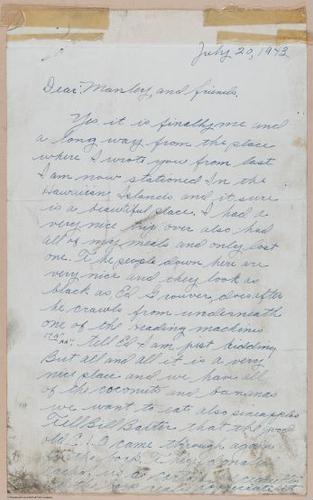 July 20, 1943
Dear: Manley, and friends,
Yes it is finally me and
a long ways from the place
where I wrote you from last
I am now stationed In the
Hawaiian Islands and it sure
is a beautiful place. I had a
very nice trip over also had
all of my meals and only lost
one. The people down here are
very nice and they look as
black as Ed Grouver, does after
he crawls from underneath
one of the Heading machines
tell Ed I am just kidding
But all and all it is a very
nice place and we have all
of the coconuts and bananas
we want to eat also pineapples
Tell Bill Baxter that the good
old I came through again